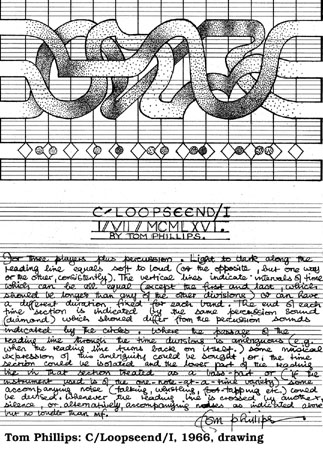 C/LOOPSEEND/I
I/VII/MCMLXVI.
BY TOM PHILLIPS.
For three players plus percussion. Light to dark along the
reading line equals soft to loud (or the opposite, but one way
or the other, consistently). The vertical lines indicate intervals of time
which can be all equal (except the first and last, which
should be longer than any of the other divisions) or can have
a different duration fixed for each band. The end of each
time section is indicated by the same percussion sound
(diamond) which should differ from the percussion sounds
indicated by the circles. Where the passage of the
reading line through the time divisions is ambiguous (e.g.
when the reading line turns back on itself) some musical
expression of this ambiguity could be sought, or, the time
section could be isolated and the lower part of the reading
line in that section treated as a bass-part or (if the
instrument used is of the one-note-at-a-time variety) some
accompanying noise (talking, whistling, foot-tapping etc.) could
be devised. Whenever the reading line is crossed by another,
silence, or, alternatively, accompanying noises as indicated above
but no louder than mf.
Tom Phillips
Tom Phillips: C/Loopseend/I, 1966, drawing